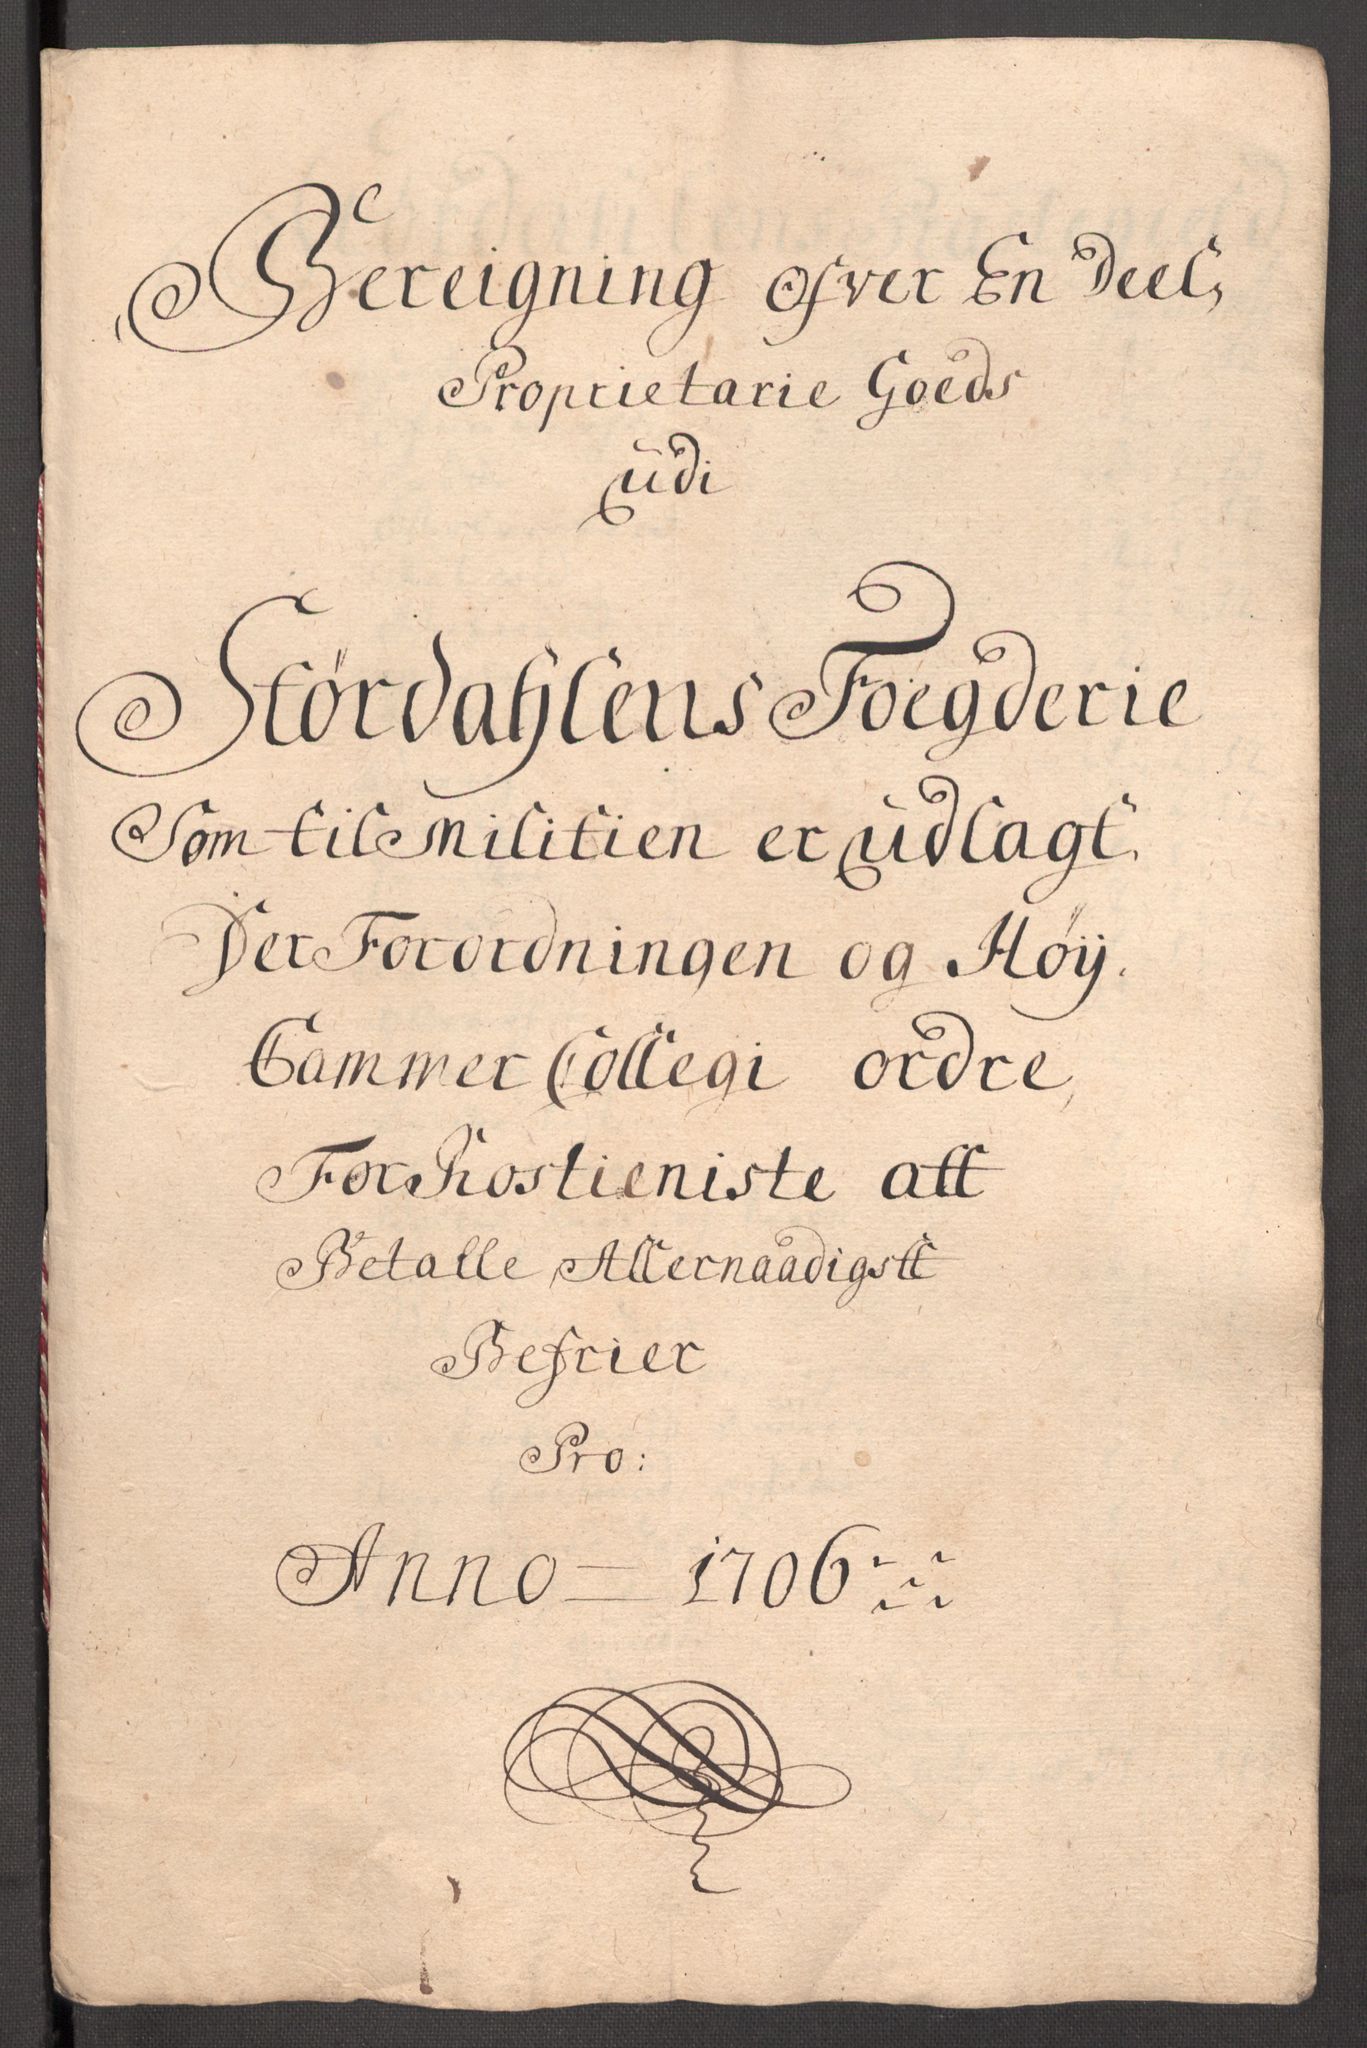 Bereigning ofver En Deel,
Proprietarie Goeds
udi
Størdahlens Foegderie
Som til Militien er udlagt.
Der Forordningen og Høÿ.
Cammer Collegi ordre,
For Rostieniste att
Betalle Allernaadigstt
Befrier
Pro:
Anno = 1706